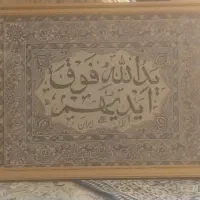 يد الله فوق
ايديهم